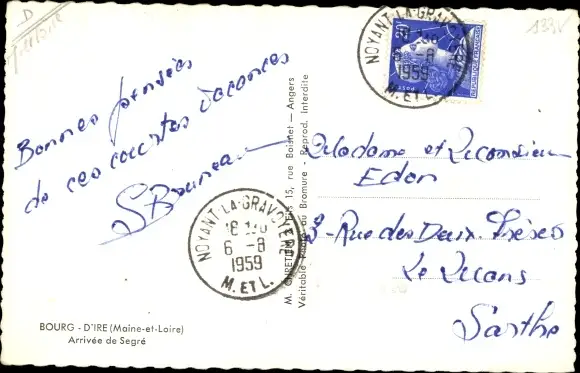 Bonnes pensées
de ces courtes vacances
NOYANT-LA-GRAVOYERE
6 -8
1959
M. ET L.
BOURG - D'IRE (Maine-et-Loire)
Arrivée de Segré
M. CHRETIEN 15, rue Boisnet — Angers
Véritable Photo au Bromure - Reprod. Interdite
20F
REPUBLIQUE FRANÇAISE
NOYANT-LA-GRAVOYERE
6 -8
1959
M. ET L.
Madame et Monsieur
Eden
3 - Rue des Deux Frères
Le Mans
Sarthe